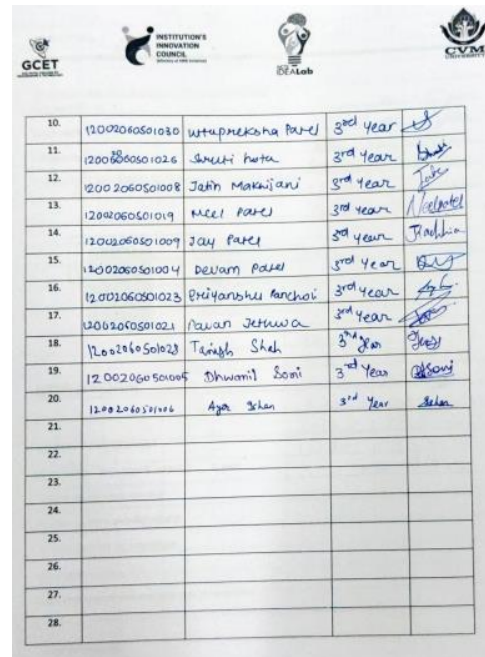 GCET
INSTITUTION'S
INNOVATION
COUNCIL
IDEALab
CVM
UNIVERSITY
10. 12002060501030 utapreksha Patel 3rd Year
11. 12002060501026 Shruti hota 3rd Year
12. 12002060501008 Jatin Makwijani 3rd Year
13. 12002060501019 Neel Patel 3rd Year Neelpatel
14. 12002060501009 Jay Patel 3rd Year
15. 12002060501004 Devam Patel 3rd Year
16. 12002060501023 Priyanshu Panchal 3rd Year
17. 12002060501021 Pavan Jethwa 3rd Year
18. 12002060501028 Shah 3rd Year
19. 12002060501005 Dhwanil Soni 3rd Year DSoni
20. 12002060501006 Ishan 3rd Year Ishan
21.
22.
23.
24.
25.
26.
27.
28.